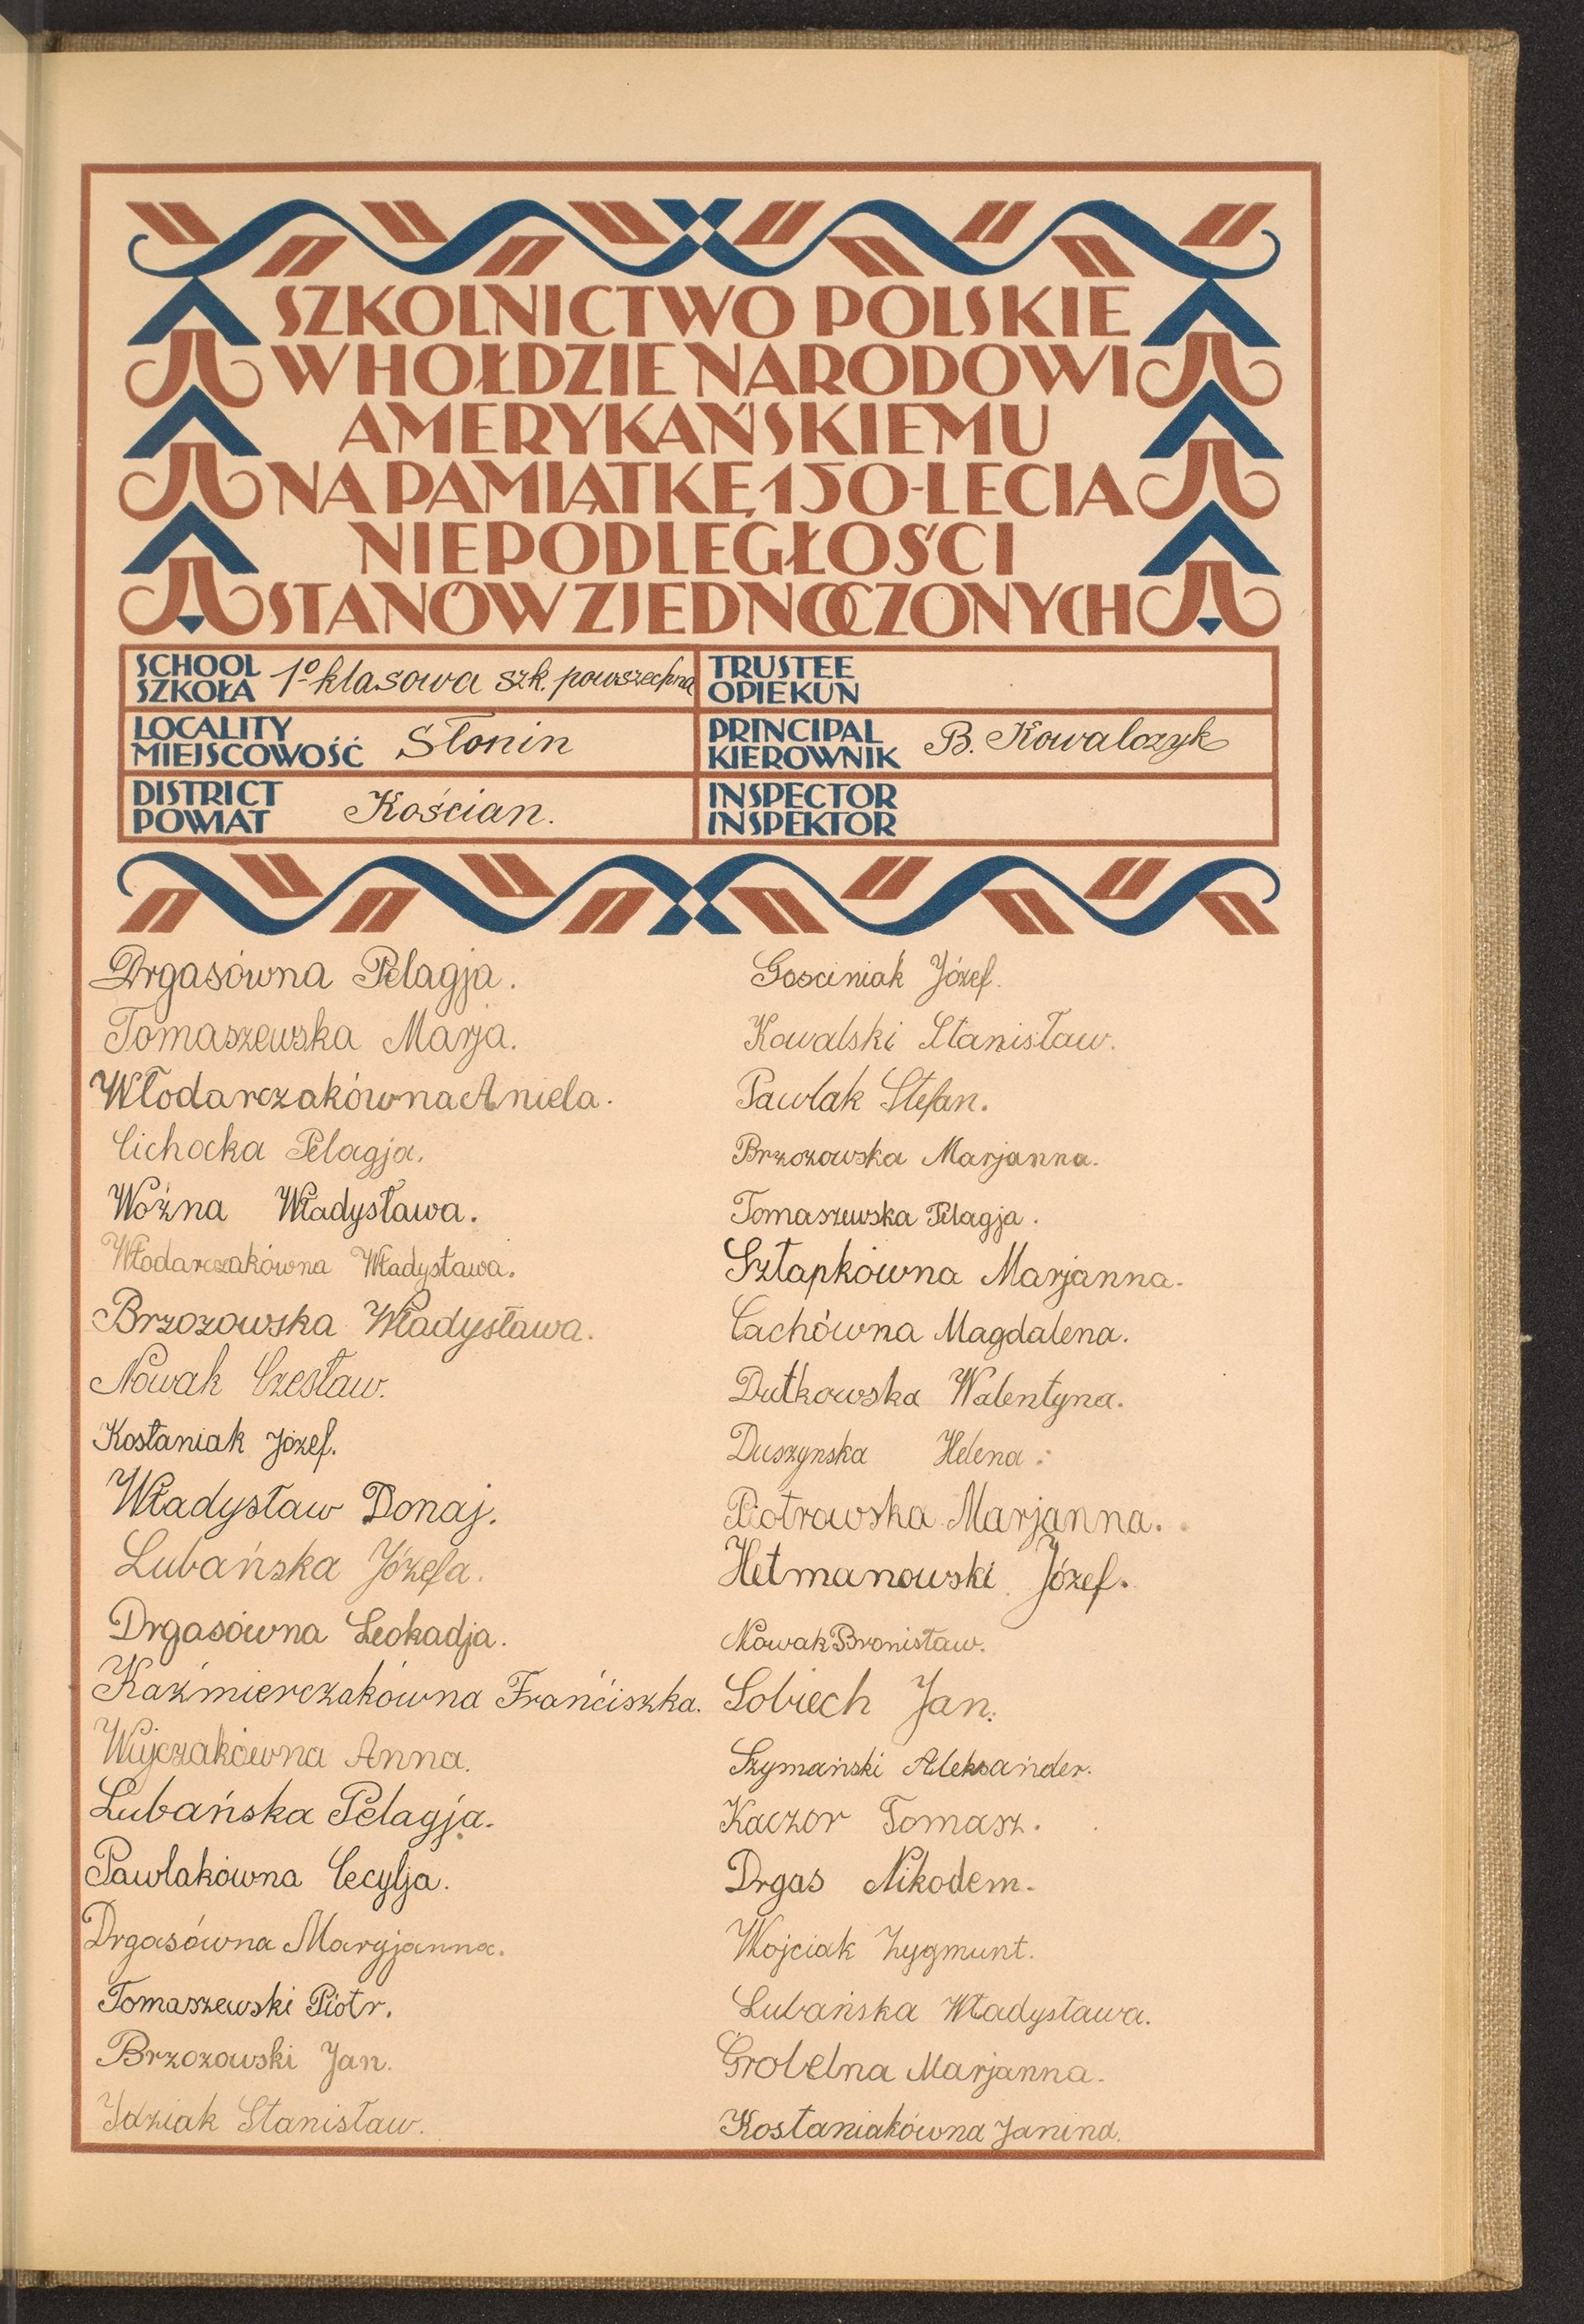 SZKOLNICTWO POLSKIE
W HOŁDZIE NARODOWI
AMERYKAŃSKIEMU
NA PAMIĄTKĘ 150-LECIA
NIEPODLEGŁOŚCI
STANÓW ZJEDNOCZONYCH
SCHOOL
SZKOŁA
1º klasowa szk. powszechna
TRUSTEE
OPIEKUN
LOCALITY
MIEJSCOWOŚĆ
Słonin
PRINCIPAL
KIEROWNIK
B. Kowalczyk
DISTRICT
POWIAT
Kościan.
INSPECTOR
INSPEKTOR
Drgasówna Pelagja.
Tomaszewska Marja.
Włodarczakówna Aniela.
Cichocka Pelagja.
Woźna Władysława.
Włodarczakówna Władysława.
Brzozowska Władysława.
Nowak Czesław.
Kostaniak Józef.
Władysław Donaj.
Lubańska Józefa.
Drgasówna Leokadja.
Kaźmierczakówna Frańciszka.
Wujczakówna Anna.
Lubańska Pelagja.
Pawlakówna Cecylja.
Drgasówna Maryjanna.
Tomaszewski Piotr.
Brzozowski Jan.
Idziak Stanisław.
Gosciniak Józef.
Kowalski Stanisław.
Pawlak Stefan.
Brzozowska Marjanna.
Tomaszewska Pelagja.
Sztapkówna Marjanna.
Cachówna Magdalena.
Dutkowska Walentyna.
Duszynska Helena.
Piotrowska Marjanna.
Hetmanowski Józef.
Nowak Bronisław.
Sobiech Jan.
Szymański Aleksander.
Kaczor Tomasz.
Drgas Nikodem.
Wojciak Zygmunt.
Lubańska Władysława.
Grobelna Marjanna.
Kostaniakówna Janina.